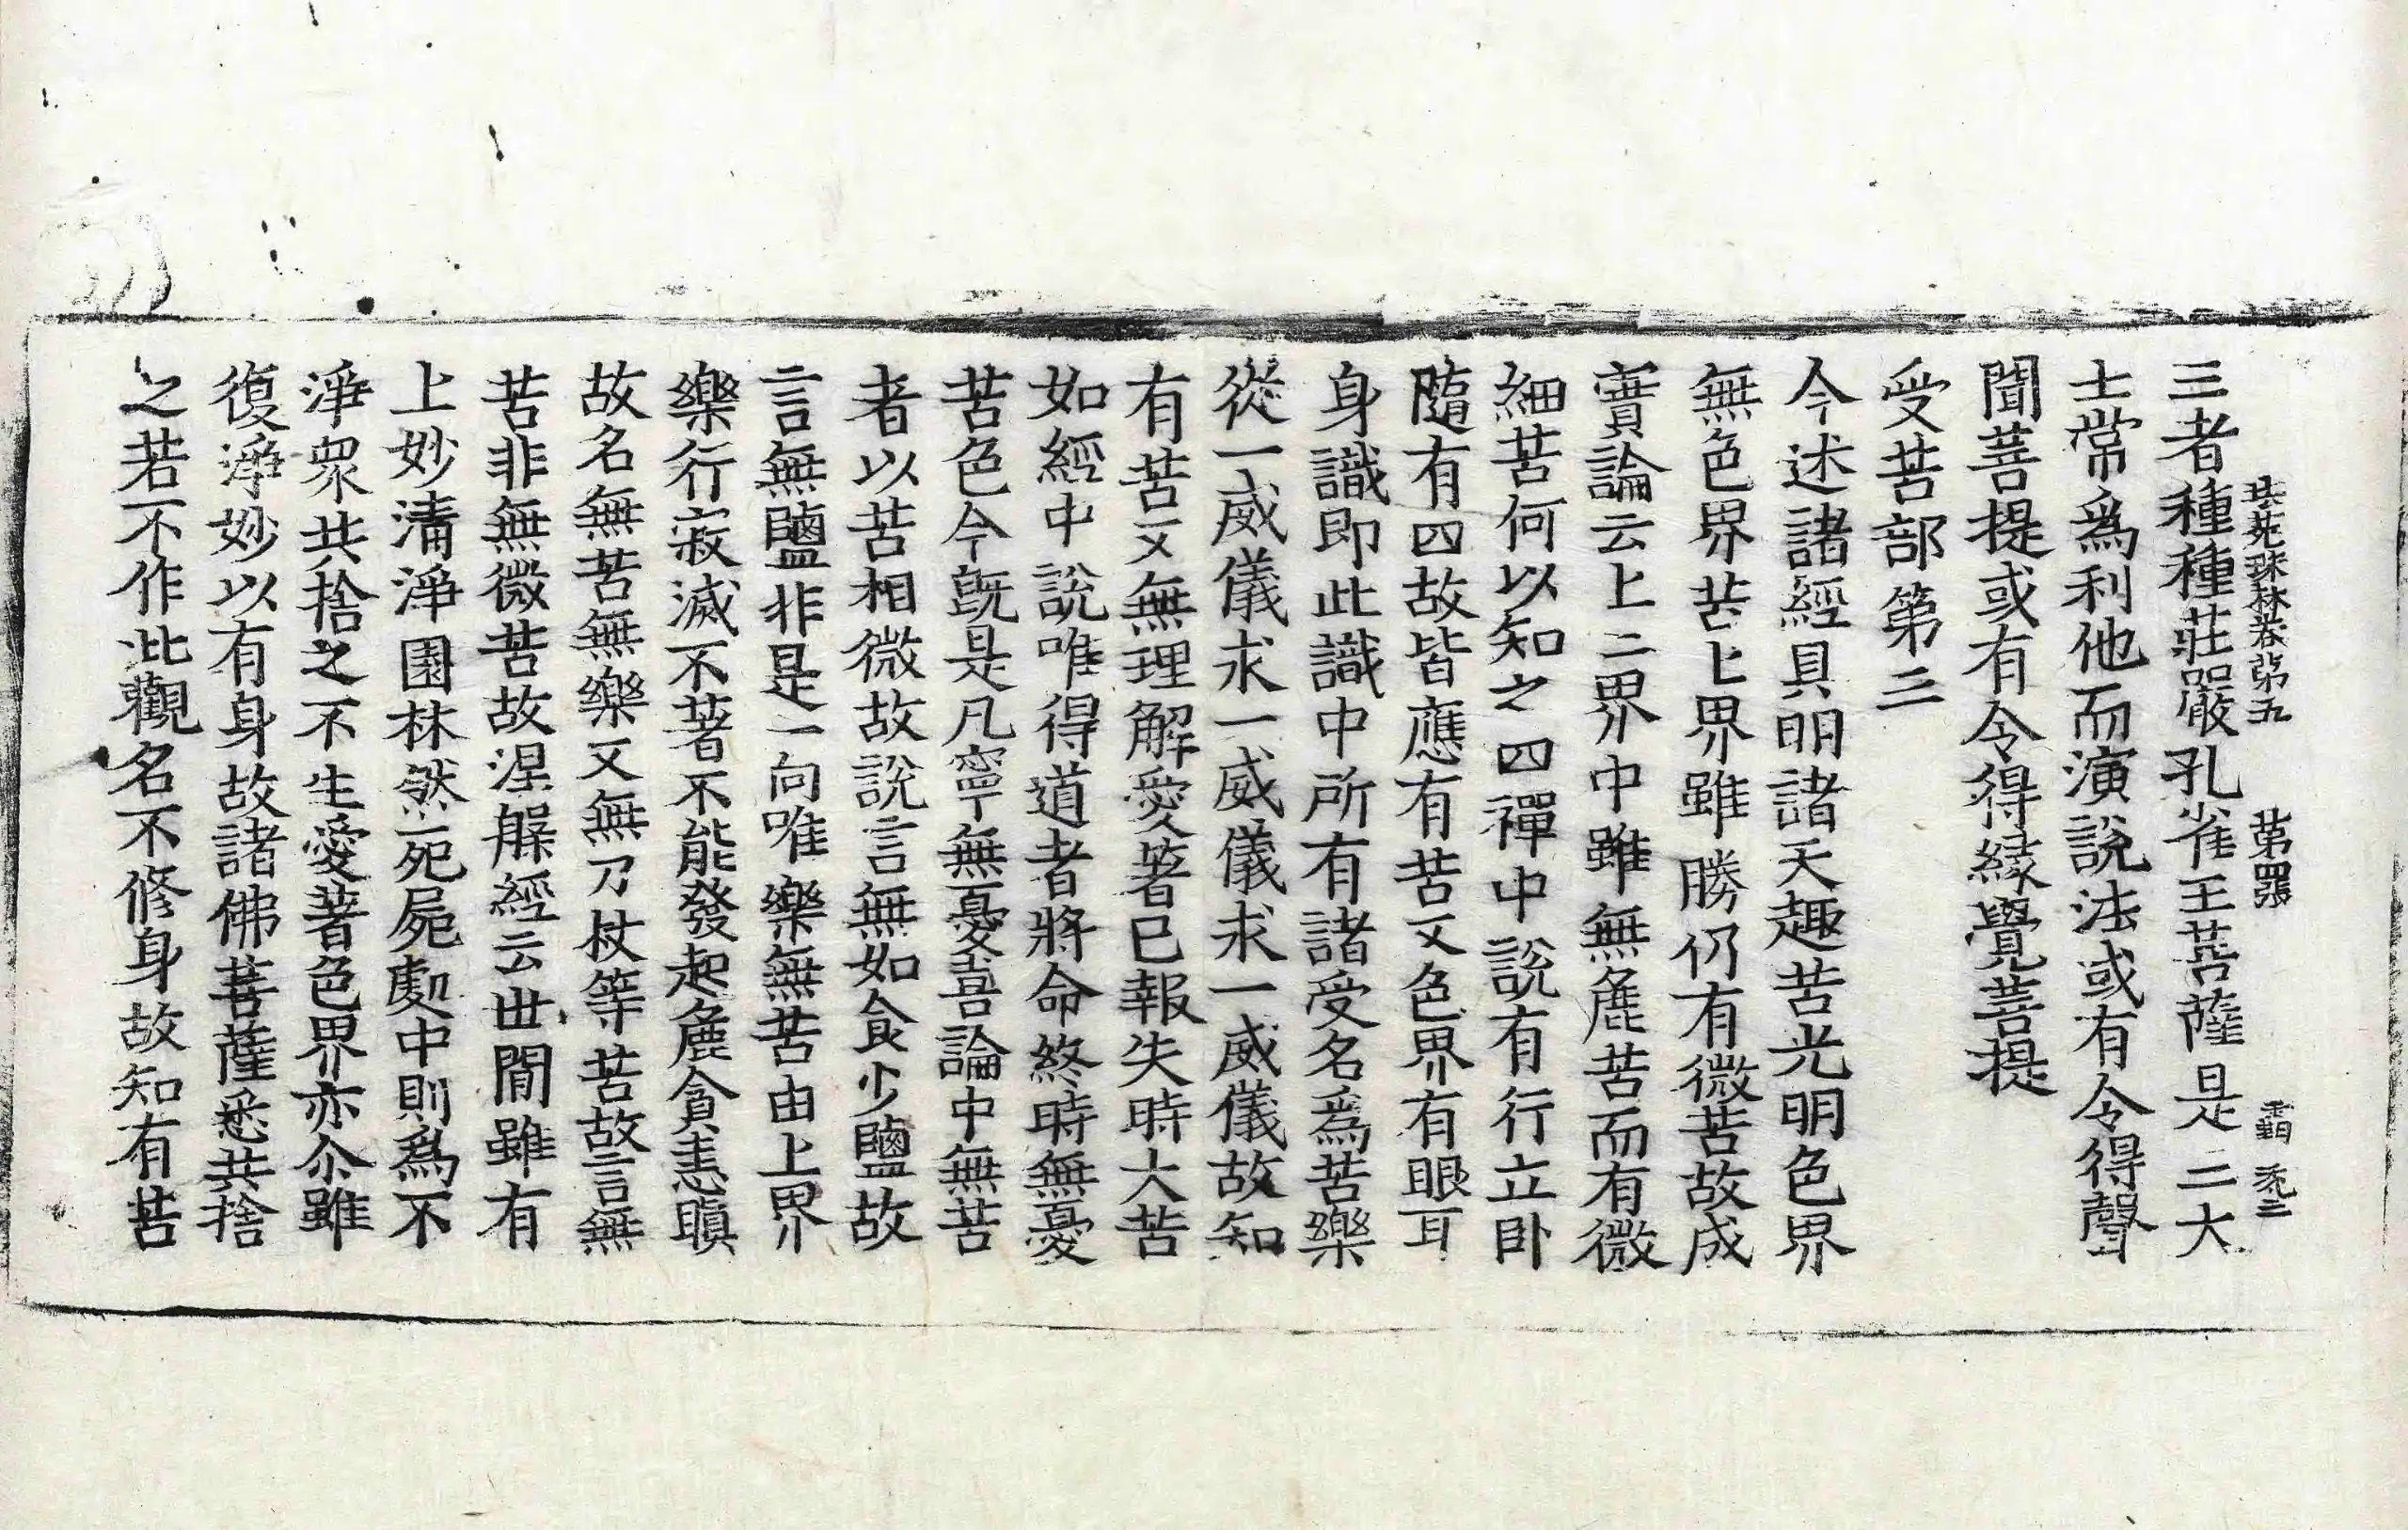 法苑珠林卷第五 第四張 
三者種種莊嚴孔雀王菩薩是二大
士常爲利他而演說法或有令得聲
聞菩提或有令得緣覺菩提
受苦部第三
今述諸經具明諸天趣苦光明色界
無色界苦上界雖勝仍有微苦故成
實論云上二界中雖無麁苦而有微
細苦何以知之四禪中說有行立卧
隨有四故皆應有苦又色界有眼耳
身識即此識中所有諸受名爲苦樂
從一威儀求一威儀求一威儀故知
有苦又無理解愛著已報失時大苦
如經中說唯得道者將命終時無憂
苦色今既是凡寧無憂喜論中無苦
者以苦相微故說言無如食少鹽故
言無鹽非是一向唯樂無苦由上界
樂行寂滅不著不能發起麁貪恚瞋
故名無苦無樂又無刀杖等苦故言無
苦非無微苦故涅槃經云世間雖有
上妙清淨園林然死屍處中則爲不
淨衆共捨之不生愛著色界亦尒雖
復淨妙以有身故諸佛菩薩悉共捨
之若不作此觀名不修身故知有苦